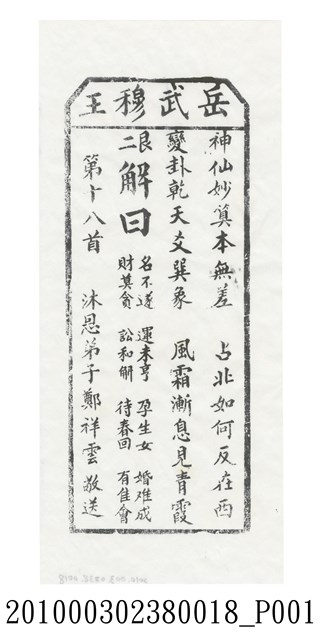 岳武穆王
神仙妙算本無差　占北如何反在西
變卦乾天爻巽象　風霜漸息見青霞
艮二
解曰
名不遂　運未亨　孕生女　婚难成
財莫貪　訟和解　待春回　有佳會
第十八首　沐恩弟子鄭祥雲敬送
201000302380018_P001